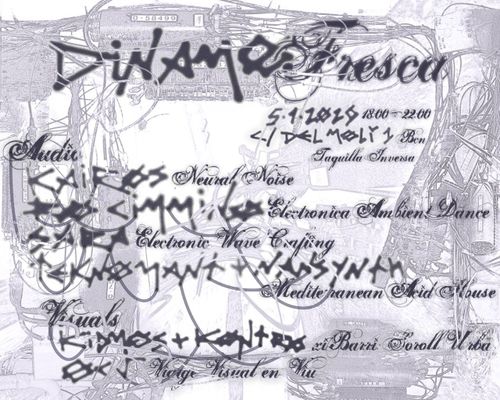 0-58499
DiNAMO: Fresca
5.1.2020 18:00 - 22:00
C./ DEL MOLÍ 1 Bcn
Taquilla Inversa
Audio
KAIROS Neural Noise
Electronica Ambient Dance
Electronic Wave Crafting
TEKNOMANT + NABSYNTH
Mediteranean Acid House
Visuals
+ xiBarri Soroll Urba
Viatge Visual en Viu